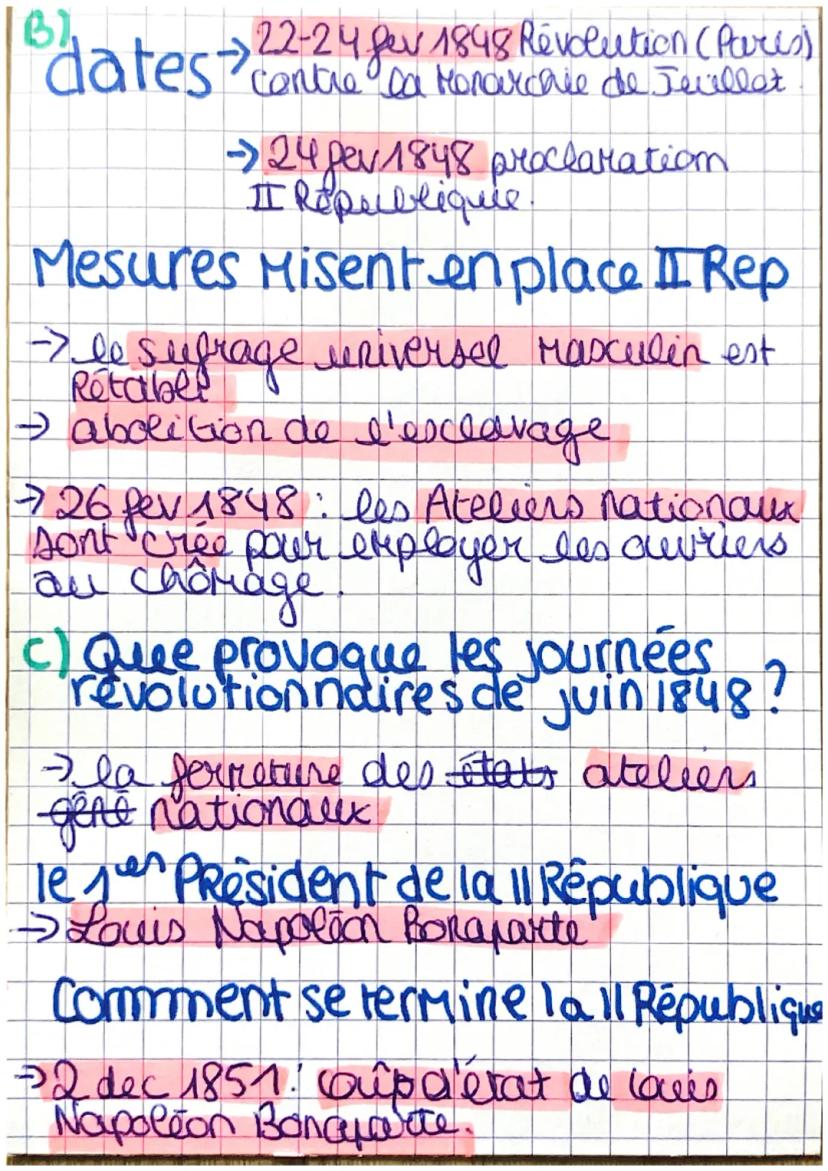 B)
dates → 22-24 fev 1848 Révolution (Paris)
contre la Monarchie de Juillet.
→ 24 fev 1848 proclamation
II République.
Mesures Misent en place II Rep
→ le sufrage universel masculin est
Rétabli
→ abolition de l'esclavage
→ 26 fev 1848 : les Ateliers nationaux
sont créé pour employer les ouvriers
au chômage.
C) Que provoque les journées
révolutionnaires de juin 1848 ?
→ la fermeture des états ateliers
géné nationaux
le 1er Président de la II République
→ Louis Napoléon Bonaparte
Commment se termine la II République
→ 2 dec 1851 : coup d'état de Louis
Napoléon Bonaparte.